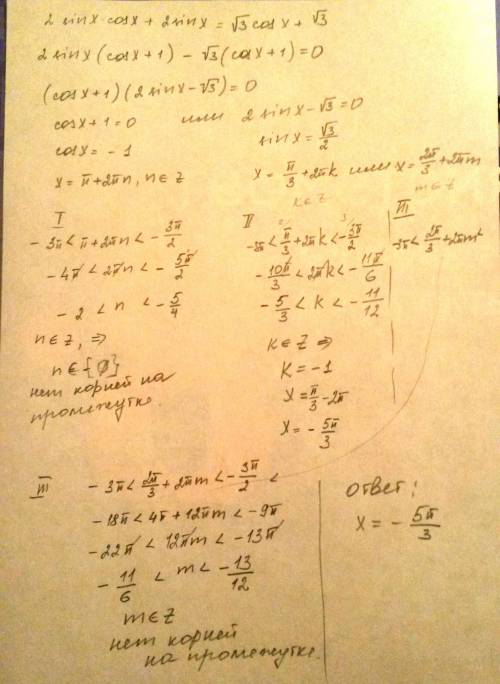 2 sinx·cosx + 2 sinx = √3 cosx + √3
2 sinx (cosx+1) - √3 (cosx+1) = 0
(cosx+1)(2 sinx-√3) = 0
cosx+1=0 или 2 sinx-√3=0
cosx = -1
sinx = √3/2
x = π+2πn, n∈Z
x = π/3 + 2πk или x = 2π/3 + 2πm
k∈Z
m∈Z
I
-3π < π+2πn < -3π/2
-4π < 2πn < -5π/2
-2 < n < -5/4
n∈Z, ⇒
n∈{∅}
нет корней на
промежутке.
II
-3π < π/3 + 2πk < -3π/2
-10π/3 < 2πk < -11π/6
-5/3 < k < -11/12
k∈Z ⇒
k = -1
x = π/3 - 2π
x = -5π/3
III
-3π < 2π/3 + 2πm <
III
-3π < 2π/3 + 2πm < -3π/2 <
-18π < 4π + 12πm < -9π
-22π < 12πm < -13π
-11/6 < m < -13/12
m∈Z
нет корней
на промежутке.
ответ:
x = -5π/3